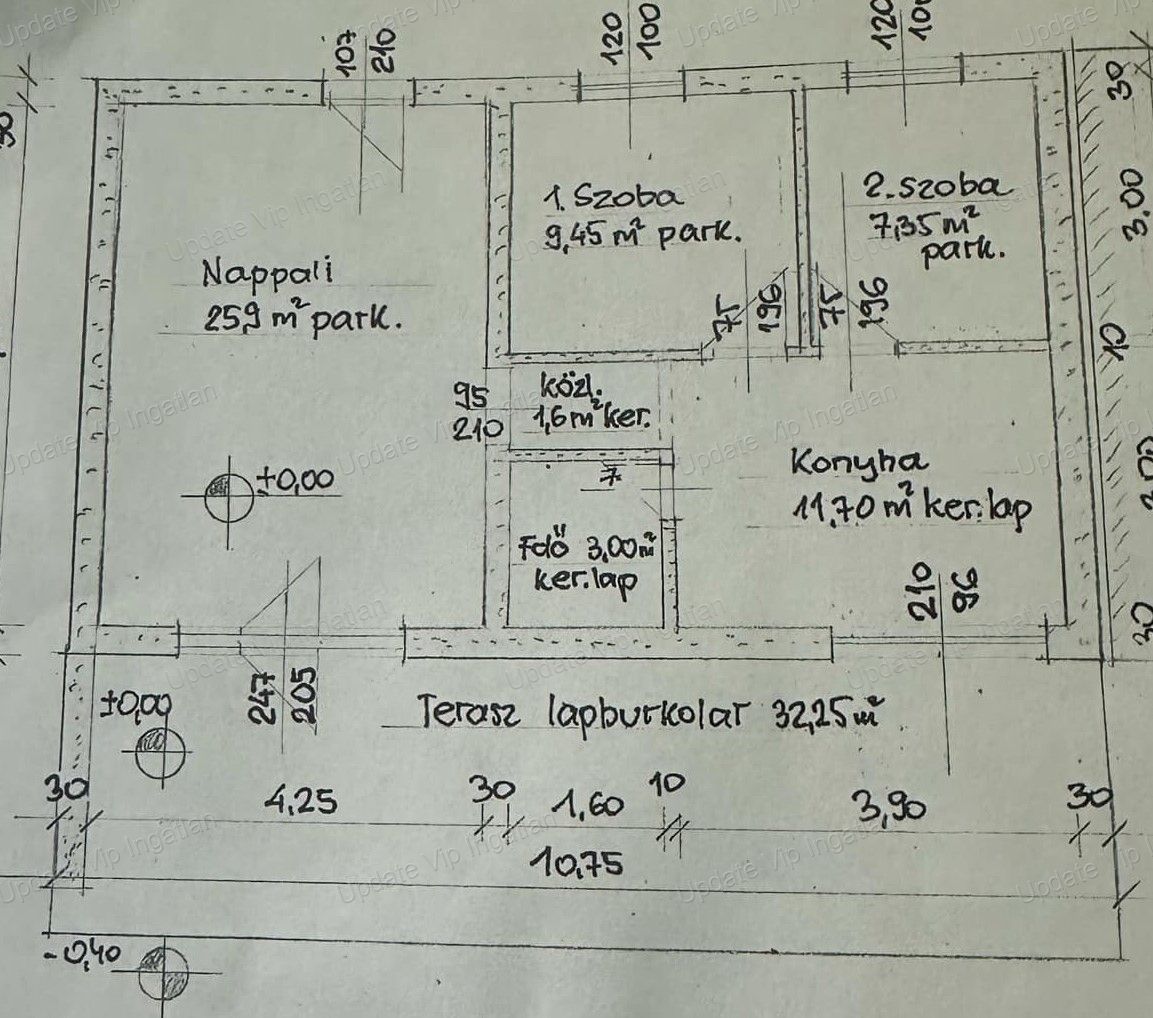 107
210
120
100
120
30
1. Szoba
9,45 m² park.
2. szoba
7,35 m²
park.
3.00
Nappali
25,9 m² park.
75
196
75
196
10
95
210
közl.
1,6 m² ker.
±0,00
7
Konyha
11,70 m² ker.lap
Fdő 3,00 m²
ker.lap
210
96
30
247
205
±0,00
Terasz lapburkolat 32,25 m²
30
4,25
30
1,60
10
3,90
30
10,75
-0,40
Update Vip Ingatlan